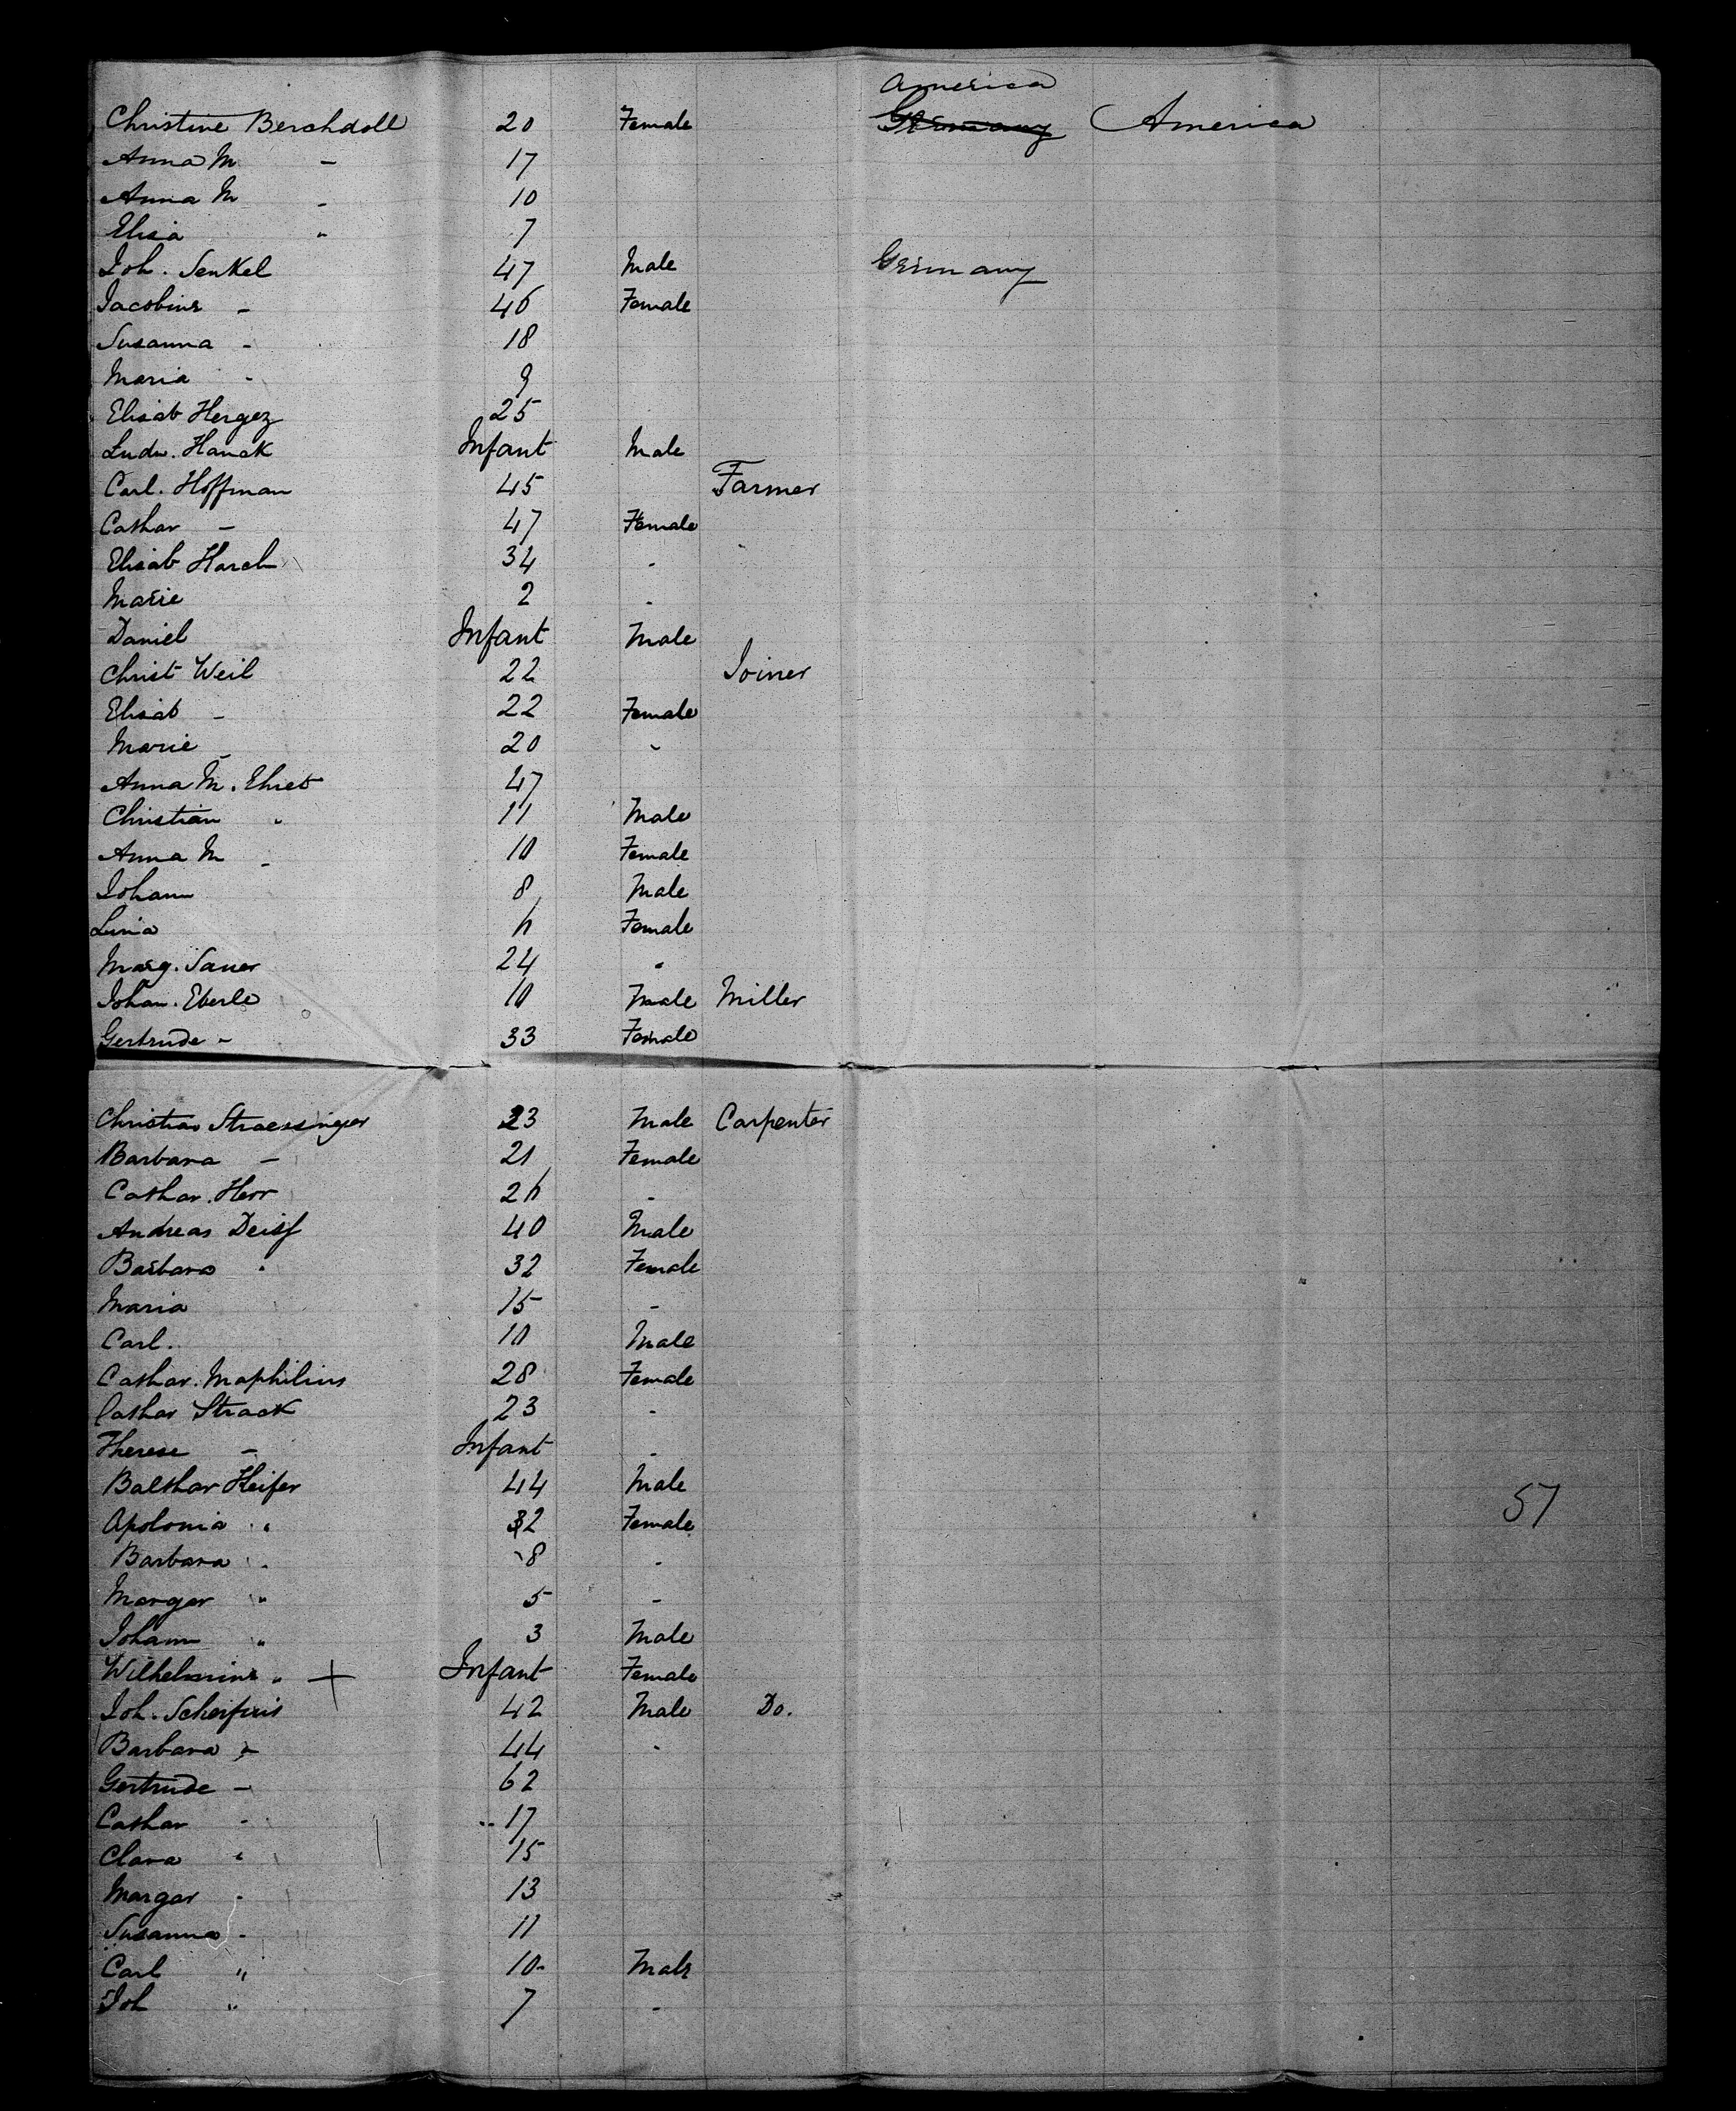 America
Christine Berchdoll 20 Female Germany America
Anna M - 17
Anna M - 10
Elisa " 7
Joh. Senkel 47 Male Germany
Jacobine - 46 Female
Susanna - 18
Maria - 9
Elisab Hergez 25
Ludw. Hanck Infant Male
Carl. Hoffman 45 Farmer
Cathar - 47 Female
Elisab Harch 34 -
Marie 2 -
Daniel Infant Male
Christ Weil 22 Joiner
Elisab - 22 Female
Marie - 20 -
Anna M. Ehret 47
Christian " 11 Male
Anna M - 10 Female
Johann 8 Male
Lina 6 Female
Marg. Sauer 24 "
Johan. Eberle 10 Male Miller
Gertrude - 33 Female
Christian Straessinger 23 Male Carpenter
Barbara - 21 Female
Cathar. Herr 26 -
Andreas Deiss 40 Male
Barbara " 32 Female
Maria 15 -
Carl. 10 Male
Cathar. Maphilius 28 Female
Cathar Strack 23 -
Therese - Infant -
Balthar Heifer 44 Male
57
Apolonia " 32 Female
Barbara " 8 -
Margar " 5 -
Johann " 3 Male
Wilhelmine " + Infant Female
Joh. 42 Male Do.
Barbara - 44 -
Gertrude - 62
Cathar - 17
Clara " 15
Margar - 13
Susanna - 11
Carl " 10 Male
Joh " 7 -